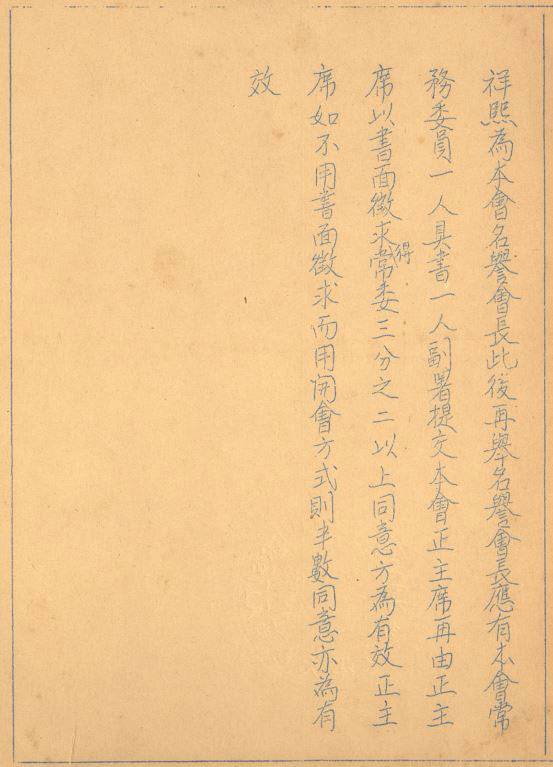 祥熙為本會名譽會長此後再舉名譽會長應有本會常
務委員一人具書一人副署提交本會正主席再由正主
席以書面徵求得常委三分之二以上同意方為有效正主
席如不用書面徵求而用開會方式則半數同意亦為有
效